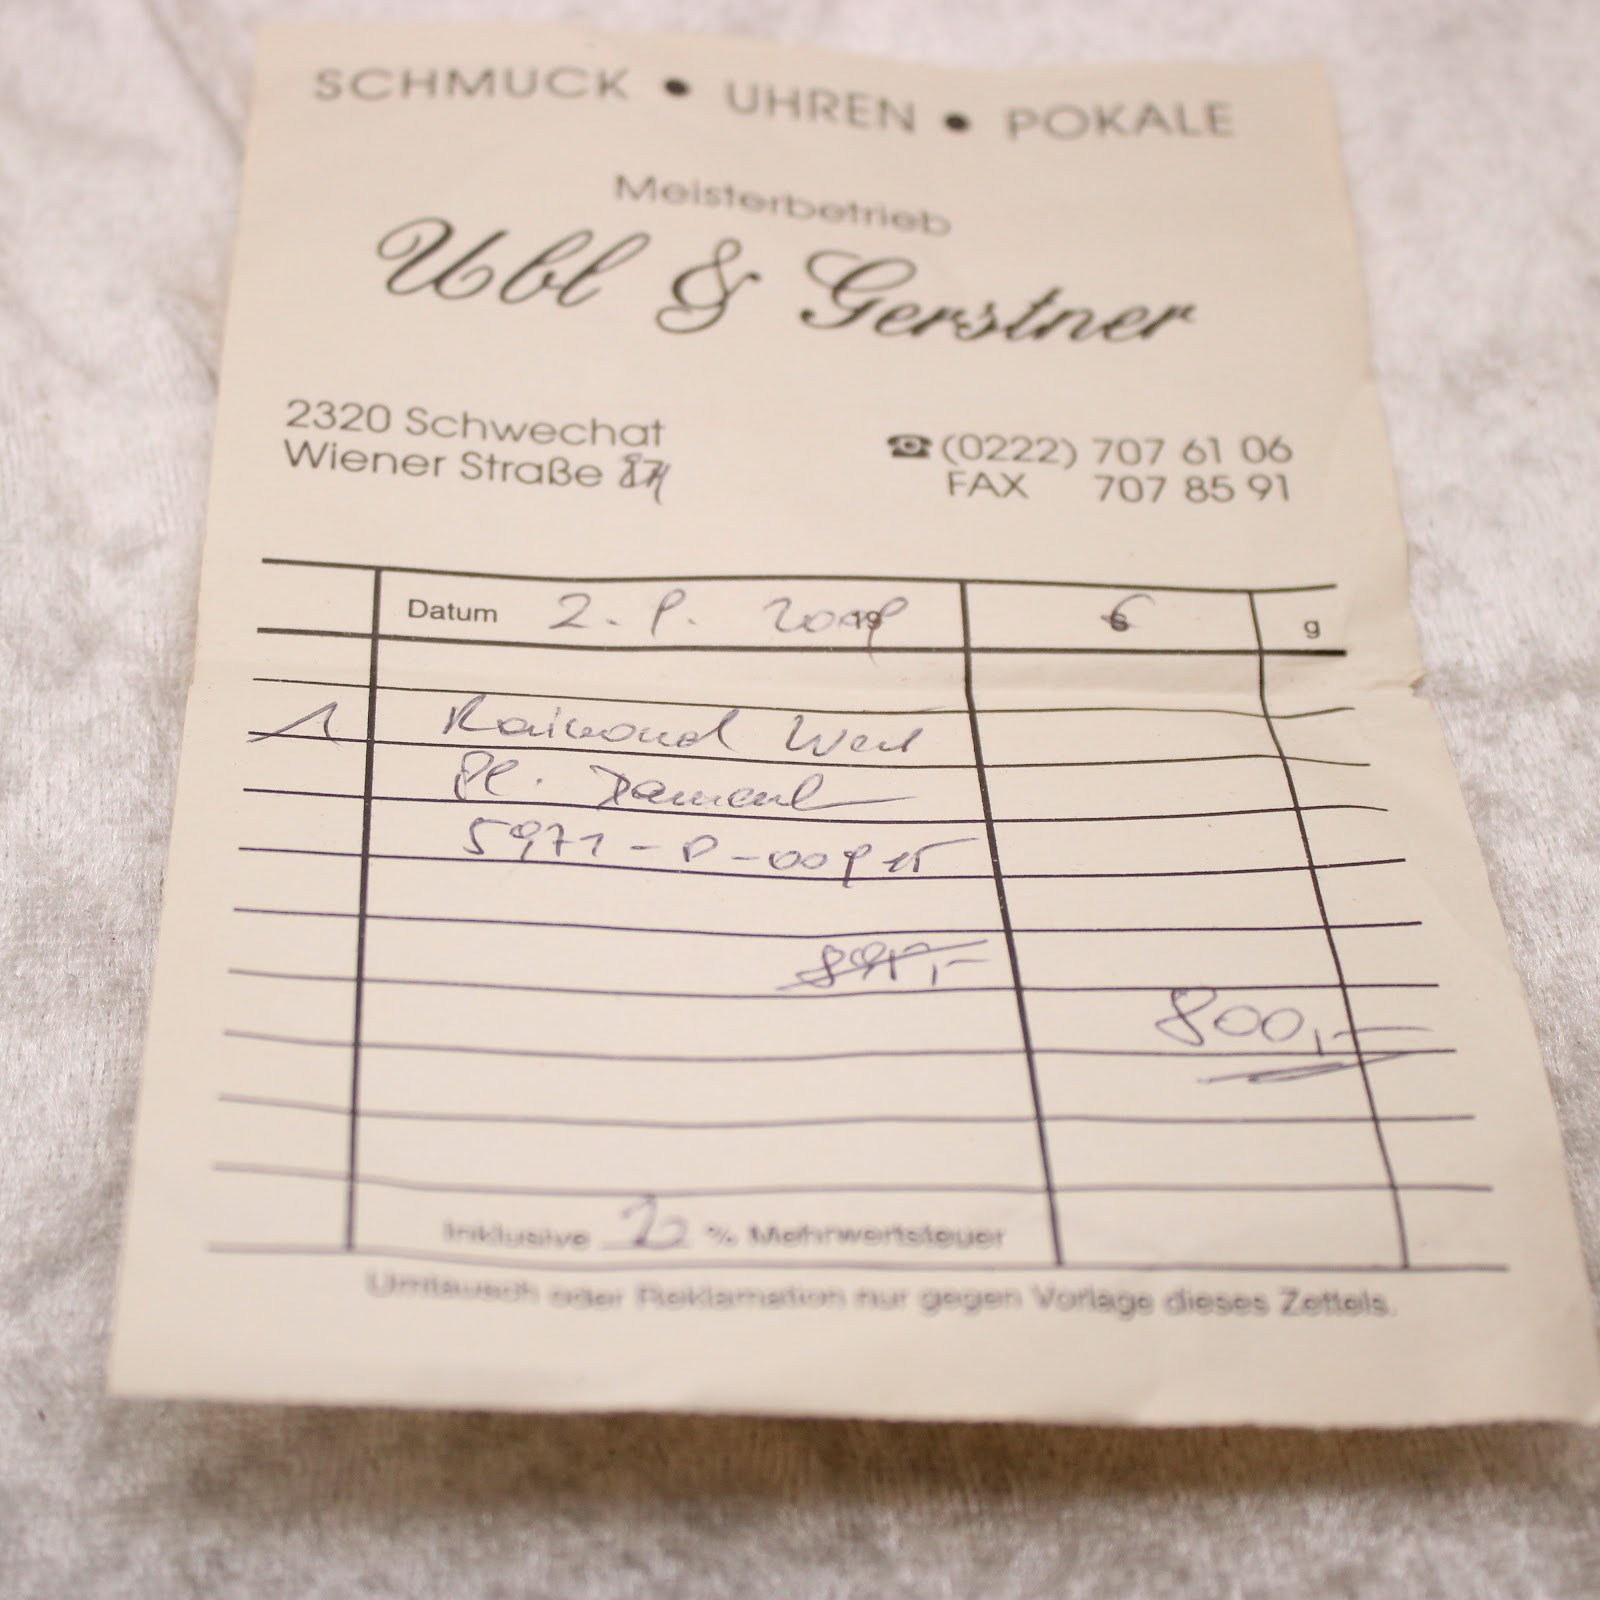 SCHMUCK • UHREN • POKALE
Meisterbetrieb
Ubl & Gerstner
2320 Schwechat
Wiener Straße
☎ (0222) 707 61 06
FAX 707 85 91
Datum 2. 9. 2009 € g
1 Raimond Weil
5971-P-00915
895,-
800,-
Inklusive 20 % Mehrwertsteuer
Umtausch oder Reklamation nur gegen Vorlage dieses Zettels.